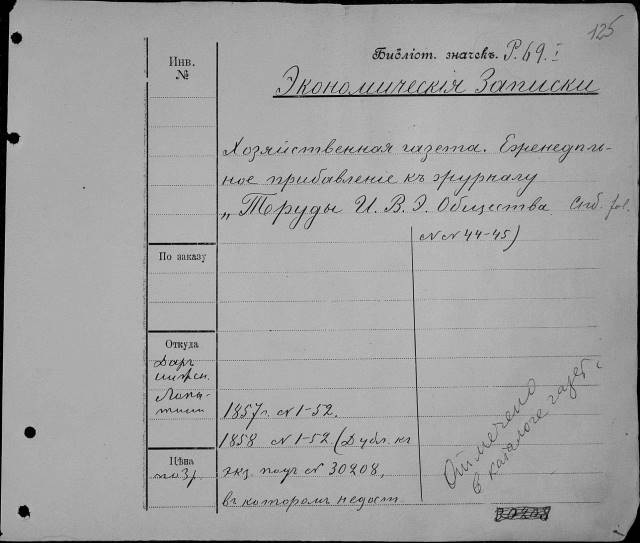 125
Библіот. значокъ. Р. 69. I
Экономическія Записки
Инв.
№
Хозяйственная газета. Еженедѣль-
ное прибавленіе къ журналу
„Труды И. В. Э. Общества. Спб. fol.
По заказу
Откуда
Даръ
инжен.
Лопа-
тина
1857 г. № 1-52.
1858 № 1-52. (Дубл. къ
Цѣна
по 3 р.
экз. подъ № 30208,
въ которомъ недост.
№№ 44-45)
Отмечено
в каталоге газет
30208